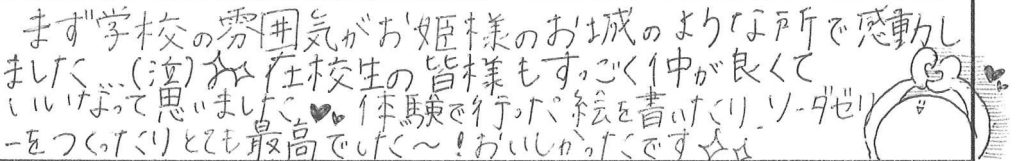 まず学校の雰囲気がお姫様のお城のような所で感動し
ました…(泣)✨在校生の皆様もすっごく仲が良くて
いいなって思いました♥。体験で行った絵を書いたり、ソーダゼリ
ーをつくったりとても最高でした〜!おいしかったです✨